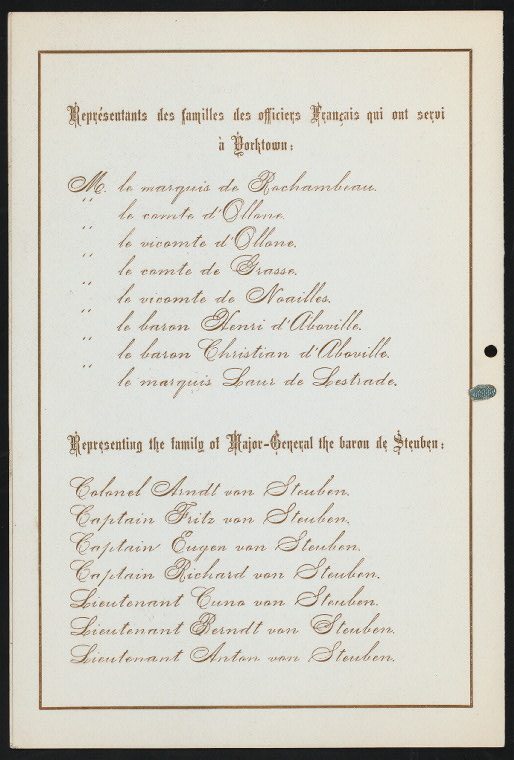 Représentants des familles des officiers Français qui ont servi
à Yorktown:
M. le marquis de Rochambeau.
" le comte d'Ollone.
" le vicomte d'Ollone.
" le comte de Grasse.
" le vicomte de Noailles.
" le baron Henri d'Aboville.
" le baron Christian d'Aboville.
" le marquis Laur de Lestrade.
Representing the family of Major-General the baron de Steuben:
Colonel Arndt von Steuben.
Captain Fritz von Steuben.
Captain Eugen von Steuben.
Captain Richard von Steuben.
Lieutenant Cuno von Steuben.
Lieutenant Berndt von Steuben.
Lieutenant Anton von Steuben.